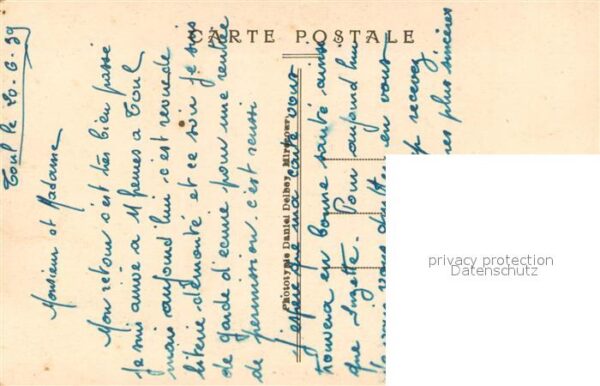 CARTE POSTALE
Toul le 20-6-39
Monsieur et Madame
Mon retour c'est très bien passé
je suis arrivé à 11 heures à Toul
mais aujourd'hui c'est revende
literie démonté et ce soir je suis
de garde d'écurie pour une rentrée
de permission c'est réussi
J'espère que ma carte vous
trouvera en bonne santé ainsi
que Suzette. Pour aujourd'hui
je vous quitte en vous
recevez
les plus sincères
Phototypie Daniel Delboy, Mirecourt
privacy protection
Datenschutz